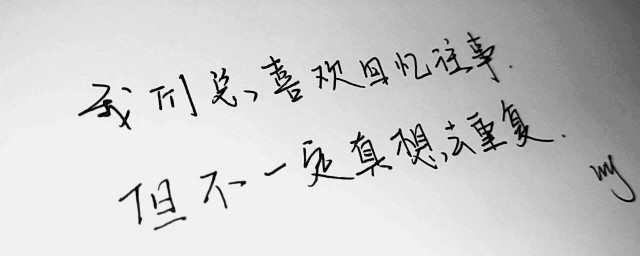 我们总喜欢回忆往事.
但不一定真想去重复.
my